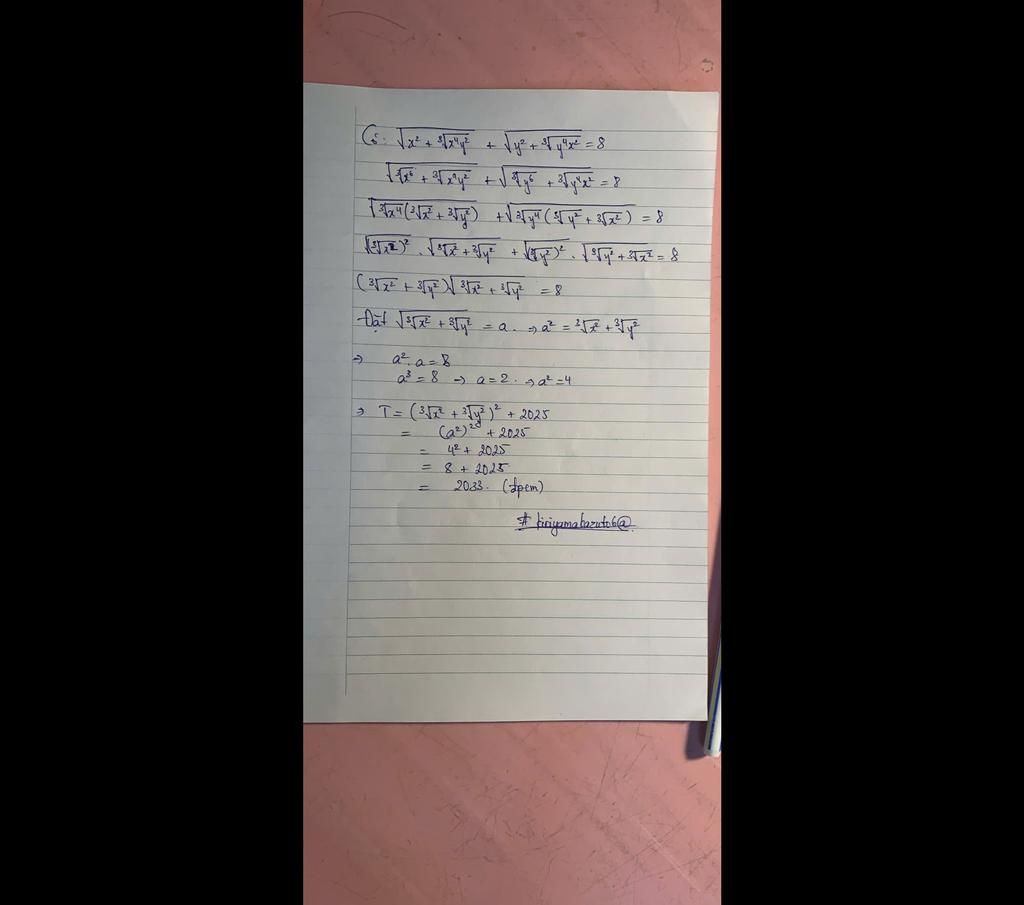 Có: √(x² + ∛(x⁴y²)) + √(y² + ∛(y⁴x²)) = 8
√(∛x⁶ + ∛(x⁴y²)) + √(∛y⁶ + ∛(y⁴x²)) = 8
√(∛x⁴(∛x² + ∛y²)) + √(∛y⁴(∛y² + ∛x²)) = 8
√(∛x²)² . √(∛x² + ∛y²) + √(∛y²)² . √(∛y² + ∛x²) = 8
(∛x² + ∛y²)√(∛x² + ∛y²) = 8
Đặt √(∛x² + ∛y²) = a. ⇒ a² = ∛x² + ∛y²
⇒ a². a = 8
a³ = 8 → a = 2. ⇒ a² = 4
⇒ T = (∛x² + ∛y²)² + 2025
= (a²)² + 2025
= 4² + 2025
= 8 + 2025
= 2033. (đpcm)
# kiriyamakazuto6@